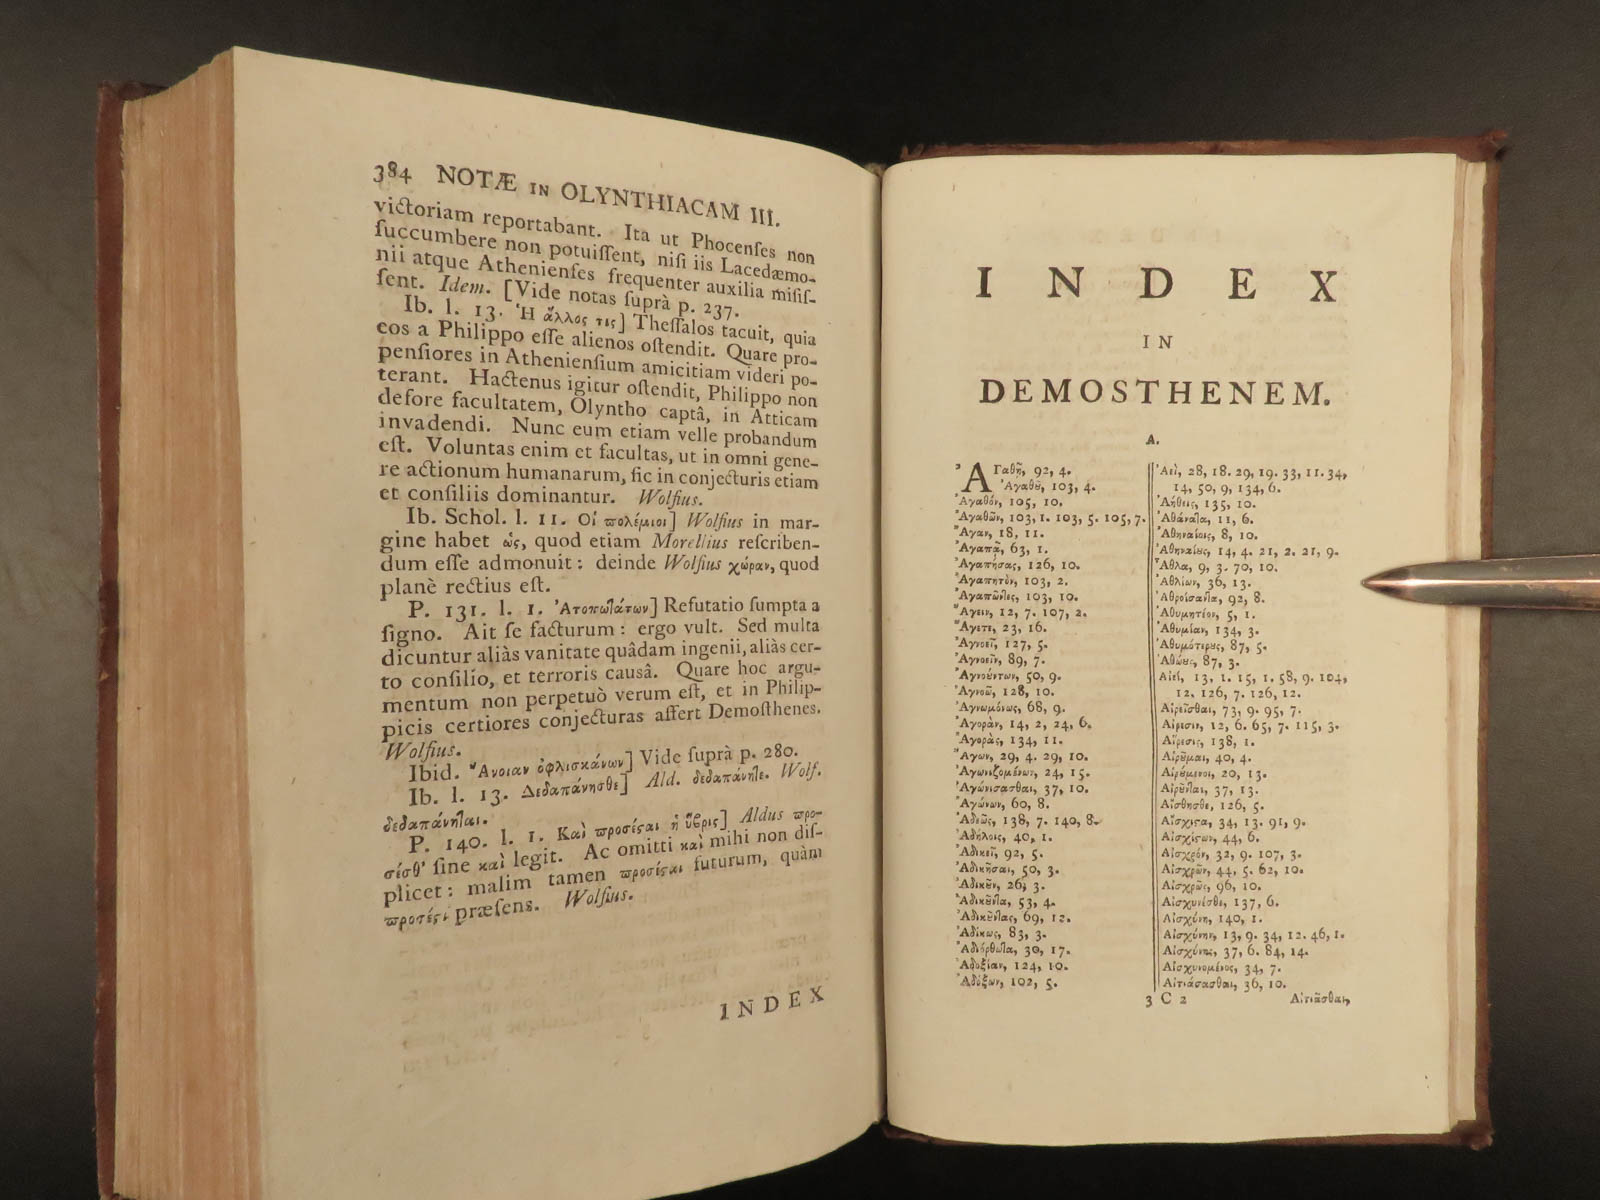 384 NOTÆ IN OLYNTHIACAM III.
victoriam reportabant. Ita ut Phocenſes non
ſuccumbere non potuiſſent, niſi iis Lacedæmo-
nii atque Athenienſes frequenter auxilia miſiſ-
ſent. Idem. [Vide notas ſuprà p. 237.
Ib. l. 13. Ἡ ἄλλος τις] Theſſalos tacuit, quia
eos a Philippo eſſe alienos oſtendit. Quare pro-
penſiores in Athenienſium amicitiam videri po-
terant. Hactenus igitur oſtendit, Philippo non
defore facultatem, Olyntho captâ, in Atticam
invadendi. Nunc eum etiam velle probandum
eſt. Voluntas enim et facultas, ut in omni gene-
re actionum humanarum, ſic in conjecturis etiam
et conſiliis dominantur. Wolfius.
Ib. Schol. l. 11. Οἱ πολέμιοι] Wolfius in mar-
gine habet ὡς, quod etiam Morellius reſcriben-
dum eſſe admonuit: deinde Wolfius χώραν, quod
planè rectius eſt.
P. 131. l. 1. Ἀτοπωτάτων] Refutatio ſumpta a
ſigno. Ait ſe facturum: ergo vult. Sed multa
dicuntur aliàs vanitate quâdam ingenii, aliàs cer-
to conſilio, et terroris causâ. Quare hoc argu-
mentum non perpetuò verum eſt, et in Philip-
picis certiores conjecturas affert Demoſthenes.
Wolfius.
Ibid. Ἄνοιαν ὀφλισκάνων] Vide ſuprà p. 280.
Ib. l. 13. Δεδαπάνησθε] Ald. δεδαπάνηται. Wolf.
δεδαπάνηται.
P. 140. l. 1. Καὶ προσέσται ἡ ὕβρις] Aldus προ-
σέσθ' ſine καὶ legit. Ac omitti καὶ mihi non diſ-
plicet: malim tamen προσέσται futurum, quàm
προσέστι præſens. Wolfius.
INDEX
INDEX
IN
DEMOSTHENEM.
A.
ἈΓαθῇ, 92, 4.
Ἀγαθοῦ, 103, 4.
Ἀγαθόν, 105, 10.
Ἀγαθῶν, 103, 1. 103, 5. 105, 7.
Ἄγαν, 18, 11.
Ἀγαπᾷ, 63, 1.
Ἀγαπήσας, 126, 10.
Ἀγαπητὸν, 103, 2.
Ἀγαπῶντες, 103, 10.
Ἄγειν, 12, 7. 107, 2.
Ἄγετε, 23, 16.
Ἀγνοεῖ, 127, 5.
Ἀγνοεῖν, 89, 7.
Ἀγνοούντων, 50, 9.
Ἀγνοῶ, 128, 10.
Ἀγνωμόνως, 68, 9.
Ἀγορὰν, 14, 2, 24, 6.
Ἀγορὰς, 134, 11.
Ἄγων, 29, 4. 29, 10.
Ἀγωνιζομένων, 24, 15.
Ἀγωνίσασθαι, 37, 10.
Ἀγώνων, 60, 8.
Ἀδεῶς, 138, 7. 140, 8.
Ἀδήλοις, 40, 1.
Ἀδικεῖ, 92, 5.
Ἀδικῆσαι, 50, 3.
Ἀδικοῦν, 26, 3.
Ἀδικοῦντα, 53, 4.
Ἀδικοῦντας, 69, 12.
Ἀδίκως, 83, 3.
Ἀδιόρθωτα, 30, 17.
Ἀδοξίαν, 124, 10.
Ἀδόξων, 102, 5.
Ἀεὶ, 28, 18. 29, 19. 33, 11. 34,
14, 50, 9, 134, 6.
Ἀήθεις, 135, 10.
Ἀθάναλα, 11, 6.
Ἀθηναίοις, 8, 10.
Ἀθηναίους, 14, 4. 21, 2. 21, 9.
Ἆθλα, 9, 3. 70, 10.
Ἀθλίων, 36, 13.
Ἀθροίσαντα, 92, 8.
Ἀθυμητέον, 5, 1.
Ἀθυμίαν, 134, 3.
Ἀθυμότερους, 87, 5.
Ἀθώους, 87, 3.
Αἰεὶ, 13, 1. 15, 1. 58, 9. 104,
12. 126, 7. 126, 12.
Αἱρεῖσθαι, 73, 9. 95, 7.
Αἵρεσιν, 12, 6. 65, 7. 115, 3.
Αἵρεσις, 138, 1.
Αἱροῦμαι, 40, 4.
Αἱρούμενοι, 20, 13.
Αἱροῦνται, 37, 13.
Αἴσθησθε, 126, 5.
Αἴσχιστα, 34, 13. 91, 9.
Αἰσχίστων, 44, 6.
Αἰσχρόν, 32, 9. 107, 3.
Αἰσχρῶν, 44, 5. 62, 10.
Αἰσχρῶς, 96, 10.
Αἰσχυνέσθε, 137, 6.
Αἰσχύνη, 140, 1.
Αἰσχύνην, 13, 9. 34, 12. 46, 1.
Αἰσχύνης, 37, 6. 84, 14.
Αἰσχυνομένος, 34, 7.
Αἰτιάσασθαι, 36, 10.
3 C 2 Αἰτιᾶσθαι,